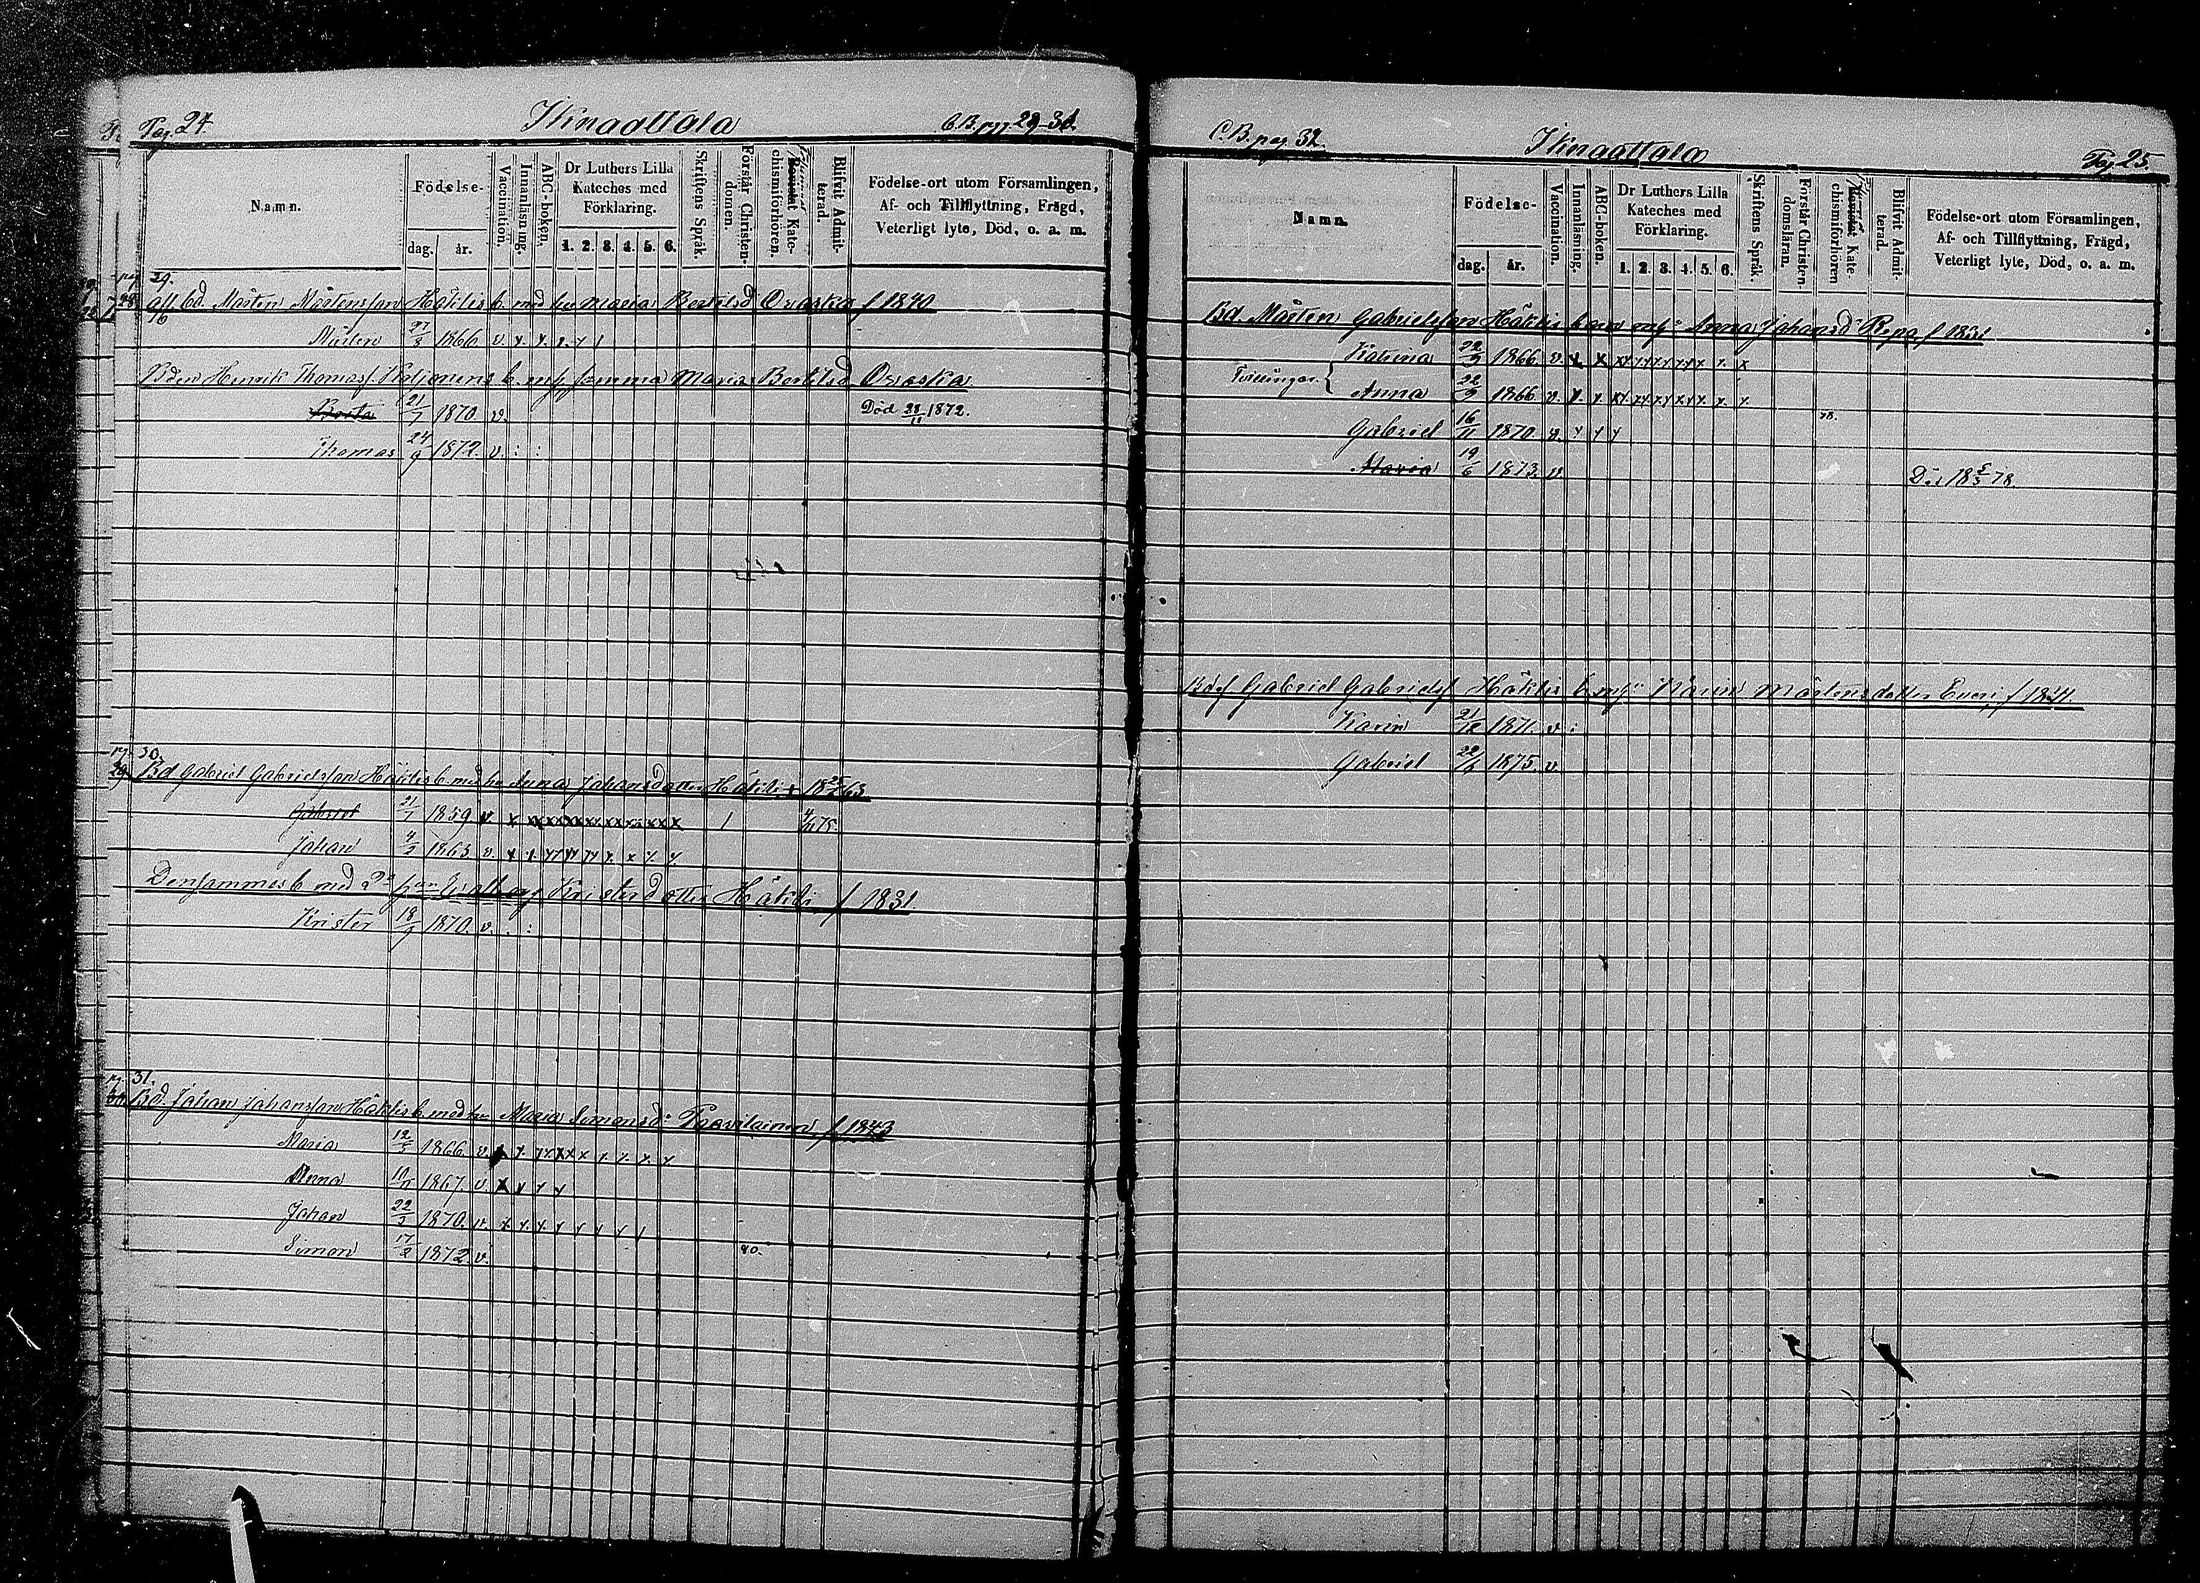 Pag. 24. Ilmaattala C.B. pag. 29-31.
Namn.
Födelse-
dag. år.
Vaccination.
Innanläsning.
ABC-boken.
Dr Luthers Lilla Kateches med Förklaring.
1. 2. 3. 4. 5. 6.
Skriftens Språk.
Förstår Christen-domen.
Bevistat Kate-chismiförhören.
Blifvit Admit-terad.
Födelse-ort utom Församlingen, Af- och Tillflyttning, Frägd, Veterligt lyte, Död, o. a. m.
pag. 29.
bd. Mårten Mårtensson Häkli b. med hu Maria Bertilsd Oraska f 1840
Mårten 27/3 1866 v. x. x. x. x
Bden Henrik Thomasf. b. m. samma Maria Bertilsd Oraska
Berta 21/7 1870 v. Död 28/11 1872.
Thomas 24/9 1872. v. : :
pag. 30.
Bd Gabriel Gabrielsson Häklis b. med hu Anna Johansdotter Häkli
Gabriel 21/1 1859 v. x xx xx xx xx xx xx x 1 75.
Johan 4/3 1863 v. x x xx xx xx x. x x. x.
Densammes b. med 2dra Kristersdotter Häkli, f 1831
Krister 18/9 1870. v. . :
31.
Bd. Johan Johansson Häklis b. med hu Maria Simonsd: Paavilainen, f 1843
Maria 12/5 1866 v. x x. xx xx x x. x. x. x
Anna 10/11 1867. v x x x x
Johan 22/3 1870. v. x x. x. x x x x 1
Simon 17/2 1872 v. 80.
C.B. pag. 32. Ilmaattala Pag. 25.
Namn.
Födelse-
dag. år.
Vaccination.
Innanläsning.
ABC-boken.
Dr Luthers Lilla Kateches med Förklaring.
1. 2. 3. 4. 5. 6.
Skriftens Språk.
Förstår Christen-domsläran.
Kate-chismiförhören
Blifvit Admit-terad.
Födelse-ort utom Församlingen, Af- och Tillflyttning, Frägd, Veterligt lyte, Död, o. a. m.
Bd. Mårten Gabrielsson Häklis barn m. Anna Johansd: Repo, f 1831
Katrina 22/9 1866. v. x x xx xx xx xx x. x
Tvillingar {
Anna 22/9 1866 v. x. x. xx xx xx xx x. x.
Gabriel 16/11 1870. v. x x x 78.
Maria 19/6 1873. v. Död 18 78.
Gabriel Gabrielsf Häklis b. m. Karin Mårtensdotter f 1831.
Karin 21/12 1871. v :
Gabriel 1875. v.